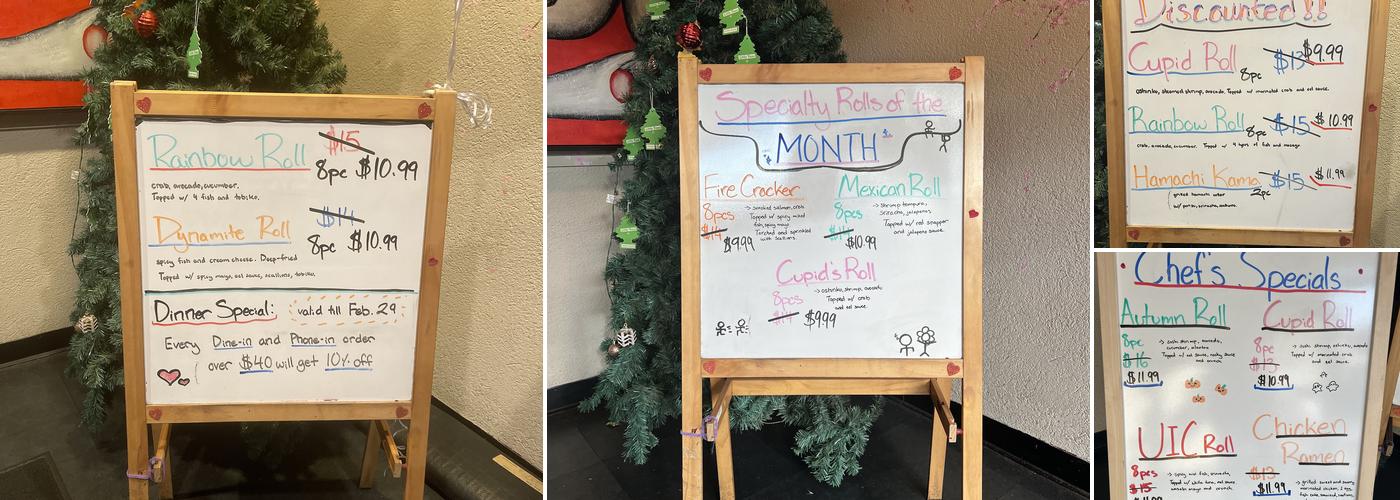 Rainbow Roll $15
8pc $10.99
crab, avocado, cucumber.
Topped w/ 4 fish and tobiko.
Dynamite Roll $14
8pc $10.99
spicy fish and cream cheese. Deep-fried
Topped w/ spicy mayo, eel sauce, scallions, tobiko.
Dinner Special: valid till Feb. 29
Every Dine-in and Phone-in order
over $40 will get 10% off
Specialty Rolls of the
MONTH
Fire Cracker
8pcs
$14
$9.99
→ smoked salmon, crab
Topped w/ spicy mixed
fish, spicy mayo
Torched and sprinkled
with scallions.
Mexican Roll
8pcs
$14
$10.99
→ shrimp tempura,
sriracha, jalapenos.
Topped w/ red snapper
and jalapeno sauce
Cupid's Roll
8pcs
$14
$9.99
→ oshinko, shrimp, avocado
Topped w/ crab
and eel sauce.
Discounted!!
Cupid Roll 8pc $13 $9.99
oshinko, steamed shrimp, avocado. Topped w/ marinated crab and eel sauce.
Rainbow Roll 8pc $15 $10.99
crab, avocado, cucumber. Topped w/ 4 types of fish and masago.
Hamachi Kama 2pc $15 $11.99
grilled hamachi collar
w/ ponzu, sriracha,
Chef's Specials
Autumn Roll
8pc
$16
$11.99
→ sushi shrimp, avocado,
cucumber, cilantro
Topped w/ eel sauce,
and crunch.
Cupid Roll
8pc
$13
$10.99
→ sushi shrimp, oshinko, avocado
Topped w/ marinated crab
and eel sauce.
UIC Roll
8pcs
$15
→ spicy mix fish, sriracha,
Topped w/ white tuna, eel sauce,
wasabi mayo and crunch.
Chicken
Ramen
$13
$11.99
→ grilled sweet and savory
marinated chicken, 2 egg,